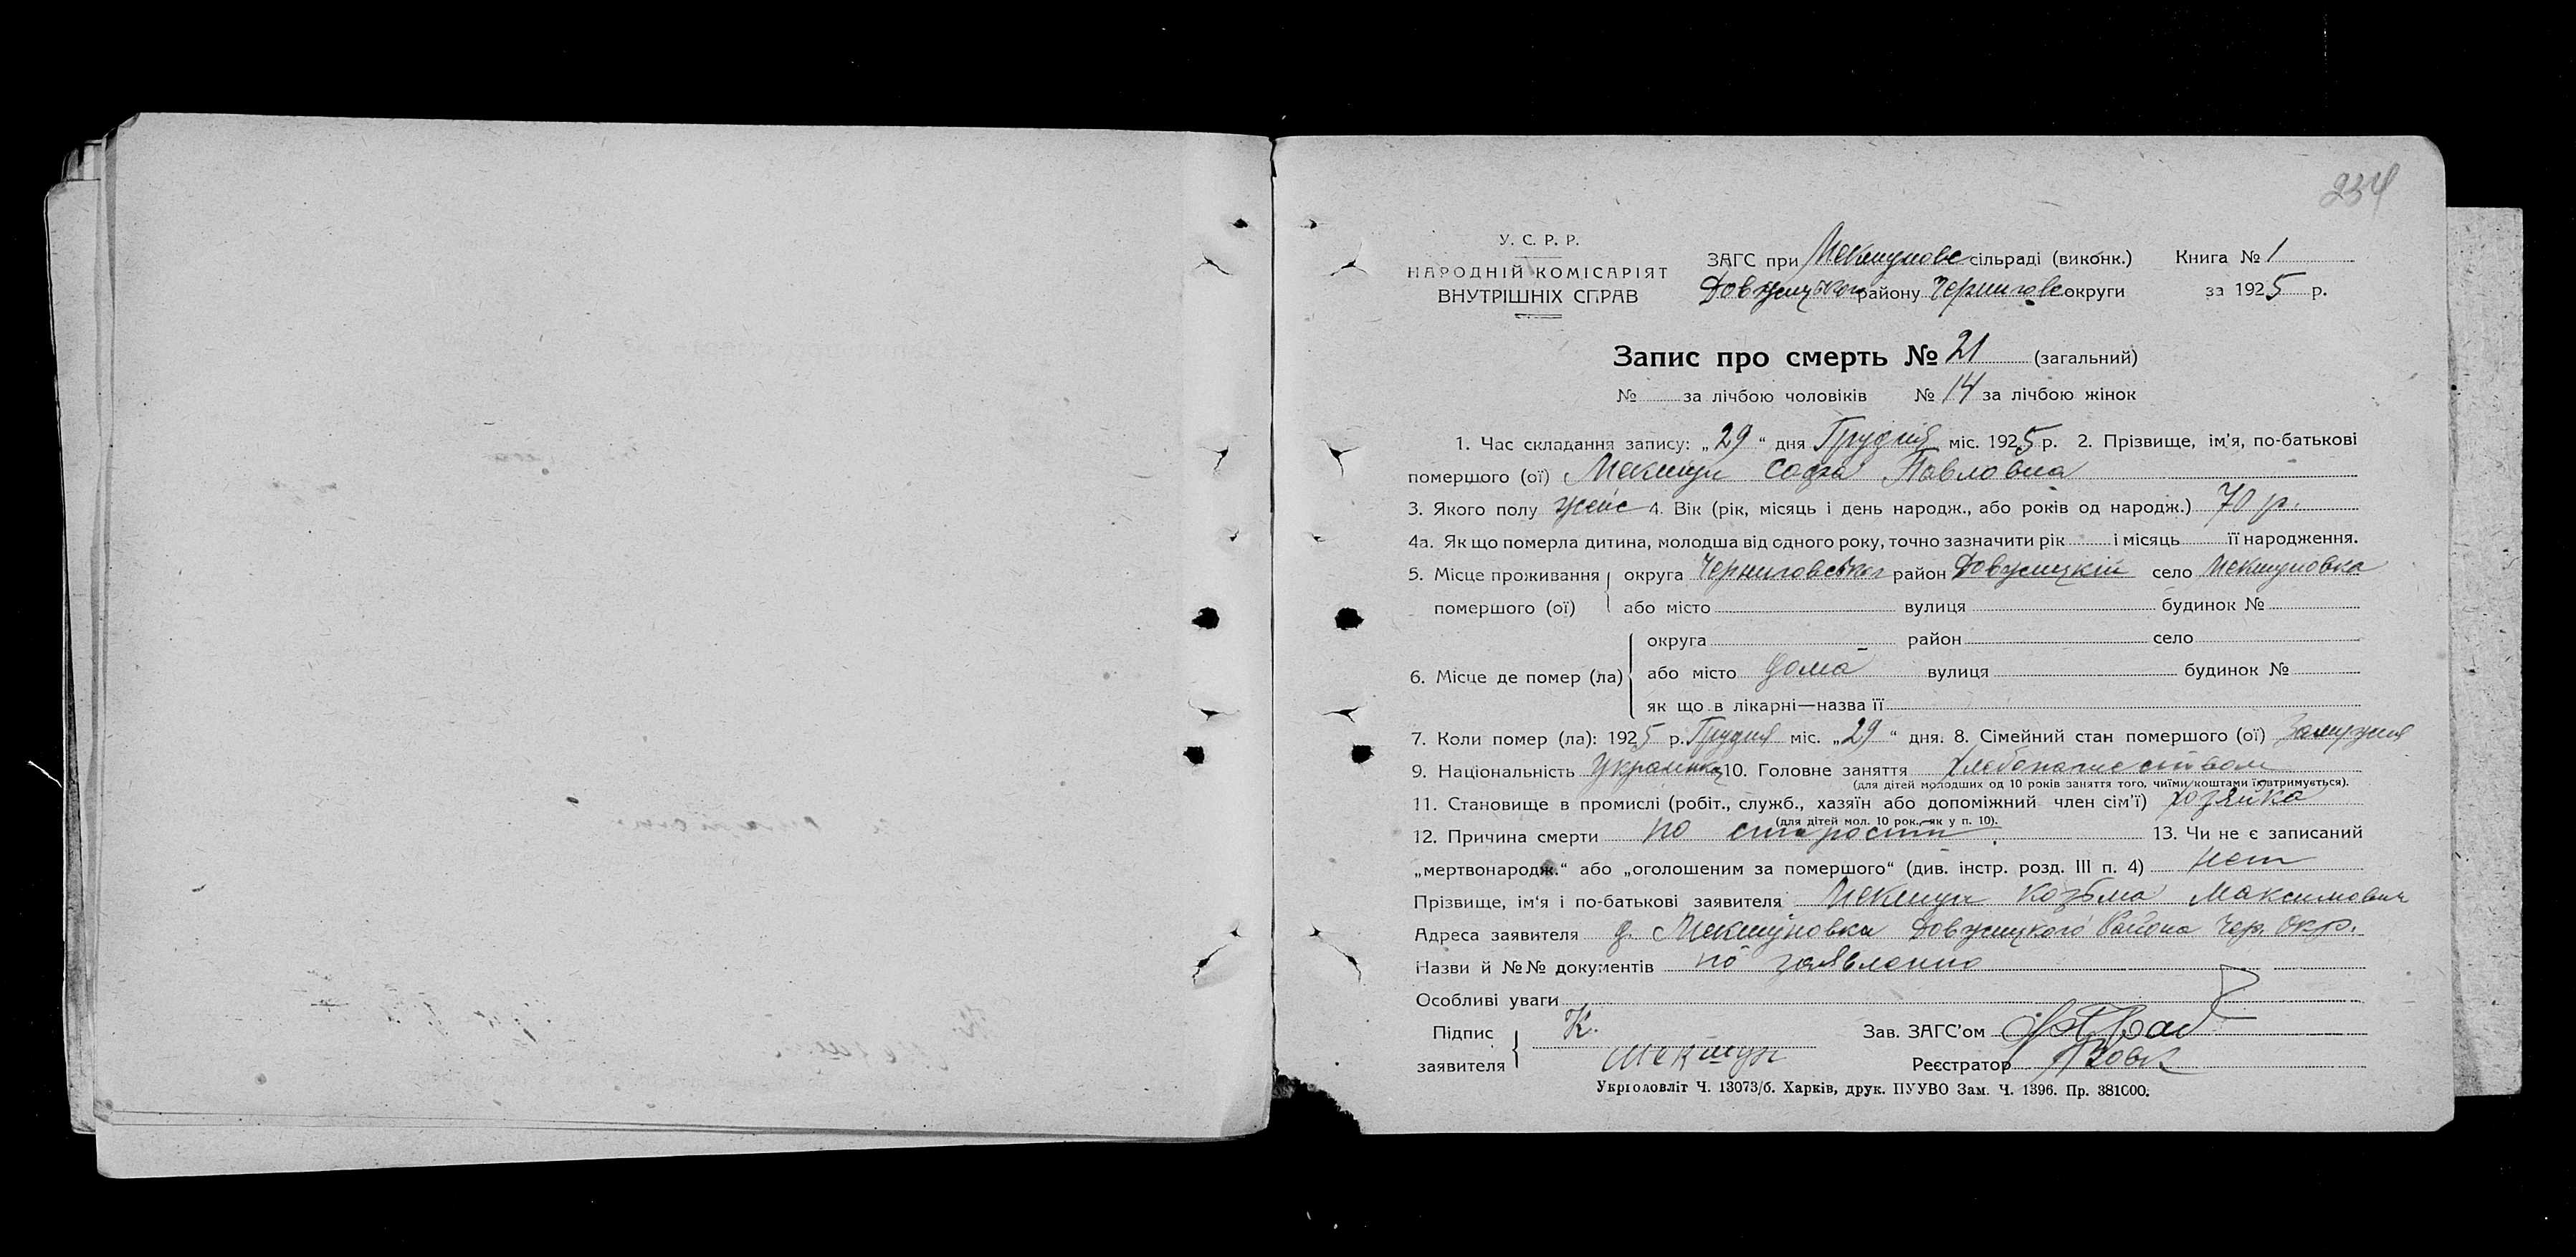 234
У. С. Р. Р.
НАРОДНІЙ КОМІСАРІЯТ
ВНУТРІШНІХ СПРАВ
ЗАГС при Мекшуновс сільраді (виконк.) Книга № 1
Довжицького району Черниговс округи за 1925 р.
Запис про смерть № 21 (загальний)
№ за лічбою чоловіків № 14 за лічбою жінок
1. Час складання запису: „29“ дня Грудня міс. 1925 р. 2. Прізвище, ім'я, по-батькові
помершого (ої) Мекшун Софія Павловна
3. Якого полу женс 4. Вік (рік, місяць і день народж., або років од народж.) 70 р.
4а. Як що померла дитина, молодша від одного року, точно зазначити рік і місяць її народження.
5. Місце проживання округа Черниговська район Довжицкій село Мекшуновка
помершого (ої) або місто вулиця будинок №
округа район село
6. Місце де помер (ла) або місто дома вулиця будинок №
як що в лікарні—назва її
7. Коли помер (ла): 1925 р. Грудня міс. „29“ дня. 8. Сімейний стан помершого (ої) замужня
9. Національність Українка 10. Головне заняття хлебопашеством
(для дітей молодших од 10 років заняття того, чиїми коштами їх втримується).
11. Становище в промислі (робіт., служб., хазяїн або допоміжний член сім'ї) хозяйка
(для дітей мол. 10 рок., як у п. 10).
12. Причина смерти по старости 13. Чи не є записаний
„мертвонародж.“ або „оголошеним за помершого“ (див. інстр. розд. III п. 4) нет
Прізвище, ім'я і по-батькові заявителя Мекшун Козьма Максимович
Адреса заявителя д. Мекшуновка Довжицкого Района Чер. Окр.
Назви й №№ документів по заявлению
Особливі уваги
Підпис К. Зав. ЗАГС'ом
заявителя Мекшун Реєстратор
Укрголовліт Ч. 13073/б. Харків, друк. ПУУВО Зам. Ч. 1396. Пр. 381000.